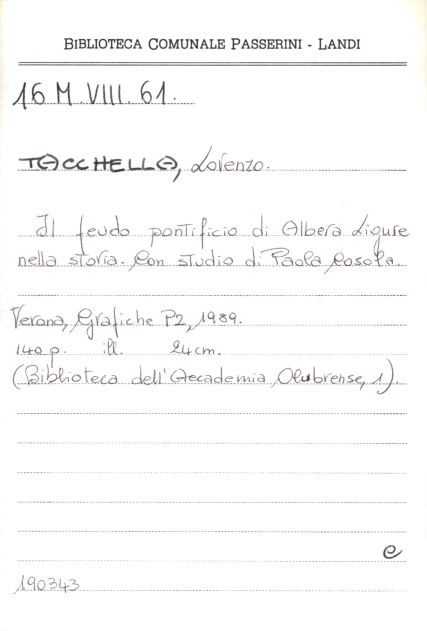 BIBLIOTECA COMUNALE PASSERINI - LANDI
16 M. VIII. 61.
TACCHELLA, Lorenzo.
Il feudo pontificio di Albera Ligure
nella storia. Con studio di Paola Cosola.
Verona, Grafiche P2, 1989.
140 p. ill. 24 cm.
(Biblioteca dell'Accademia Olubrense, 1).
e
190343